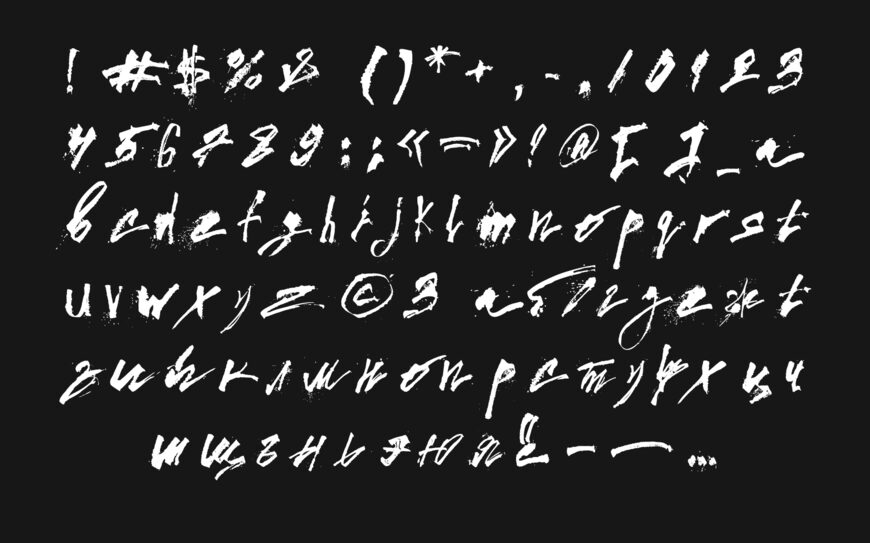 ! # $ % & ( ) * + , - . / 0 1 2 3
4 5 6 7 8 9 : ; « = » ! @ [ ] _ a
b c d e f g h i j k l m n o p q r s t
u v w x y z © 3 а б г д е ж t
г и й к л м н о п р с т у ф х ц ч
ш щ ъ ы ь э ю я ё – — …